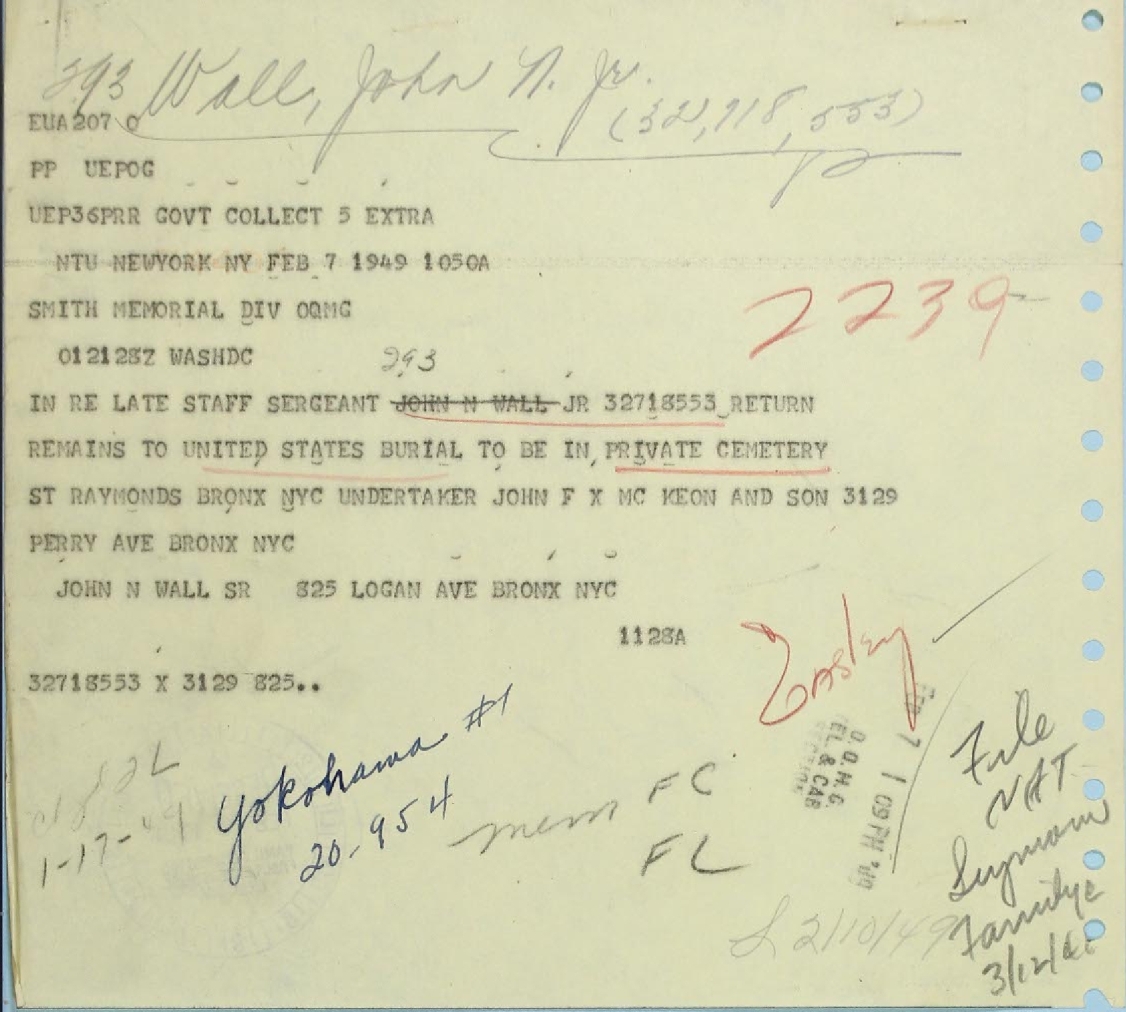 293 Wall, John N. Jr.
(32,718,553)
EUA207 O
PP UEPOG
UEP36PRR GOVT COLLECT 5 EXTRA
NTU NEWYORK NY FEB 7 1949 1050A
2239
SMITH MEMORIAL DIV OQMG
012128Z WASHDC
293
IN RE LATE STAFF SERGEANT JOHN N WALL JR 32718553 RETURN
REMAINS TO UNITED STATES BURIAL TO BE IN PRIVATE CEMETERY
ST RAYMONDS BRONX NYC UNDERTAKER JOHN F X MC KEON AND SON 3129
PERRY AVE BRONX NYC
JOHN N WALL SR 825 LOGAN AVE BRONX NYC
1128A
Easley
32718553 X 3129 825..
FEB 7 1 09 PM '49
O.Q.M.G.
TEL & CAB
SECTION
Yokohama #1
20-954
1-17-49
mem
FC
FL
File
NAT
3/12/
2/10/49